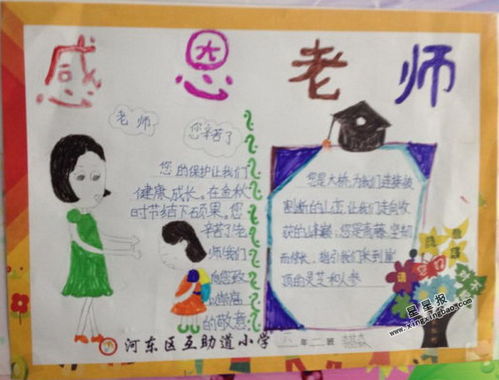 感恩老师
老师
您辛苦了
您的保护让我们
健康成长。在金秋
时节结下硕果。您
辛苦了老
师!我们
向您致
以崇高
的敬意
您是大桥,为我们连接被
割断的山峦,让我们走向收
获的峰巅;您是青藤,坚韧
而修长,指引我们采到崖
顶的灵芝和人参
河东区互助道小学
年二班
星星报
www.xingxingbao.com